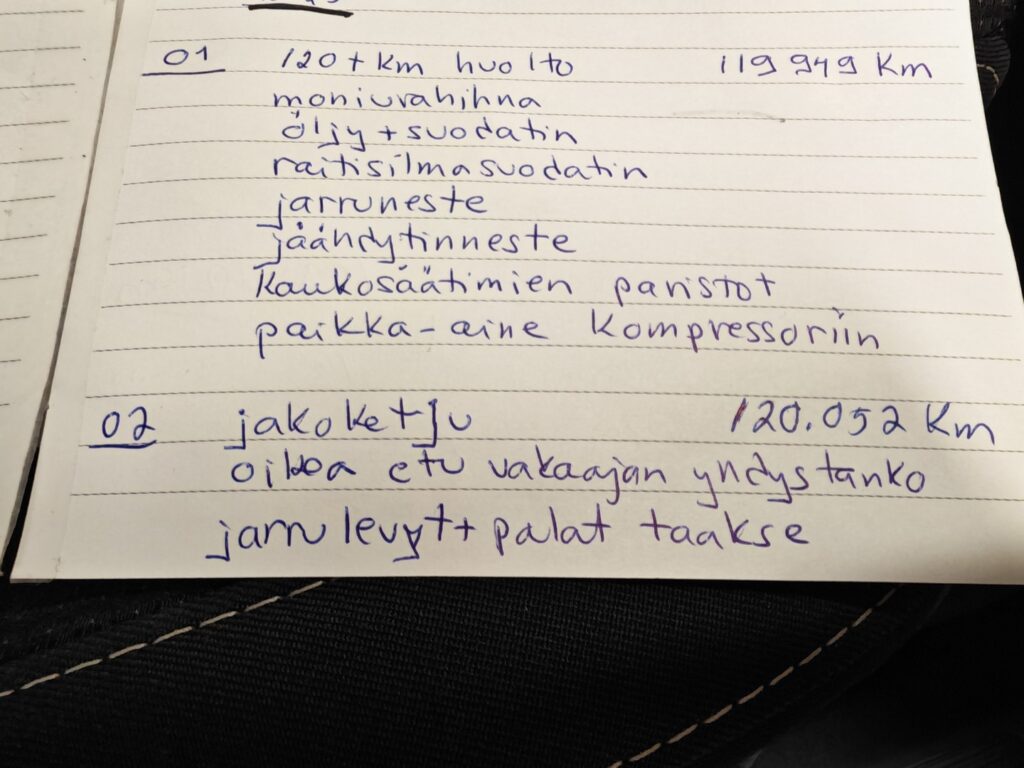 01 120+km huolto 119 949 km
moniurahihna
öljy + suodatin
raitisilmasuodatin
jarruneste
jäähdytinneste
Kaukosäätimien paristot
paikka-aine kompressoriin
02 jakoketju 120.052 Km
oikea etu vakaajan yhdystanko
jarrulevyt+ palat taakse